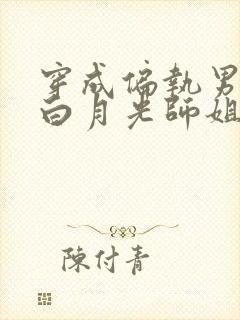 穿成偏執男
白月光師姐
陳付青